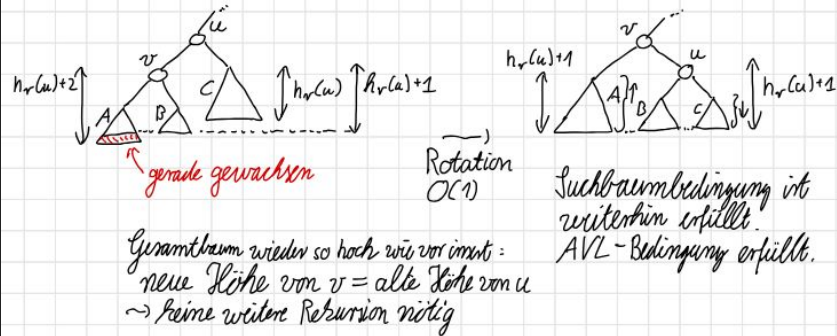 u
v
h_r(u)+2
A
B
C
h_r(u)
h_r(u)+1
gerade gewachsen
Rotation
O(1)
v
u
h_r(u)+1
A
B
C
h_r(u)+1
Suchbaumbedingung ist
weiterhin erfüllt.
AVL-Bedingung erfüllt.
Gesamtbaum wieder so hoch wie vor insert:
neue Höhe von v = alte Höhe von u
~> keine weitere Rekursion nötig